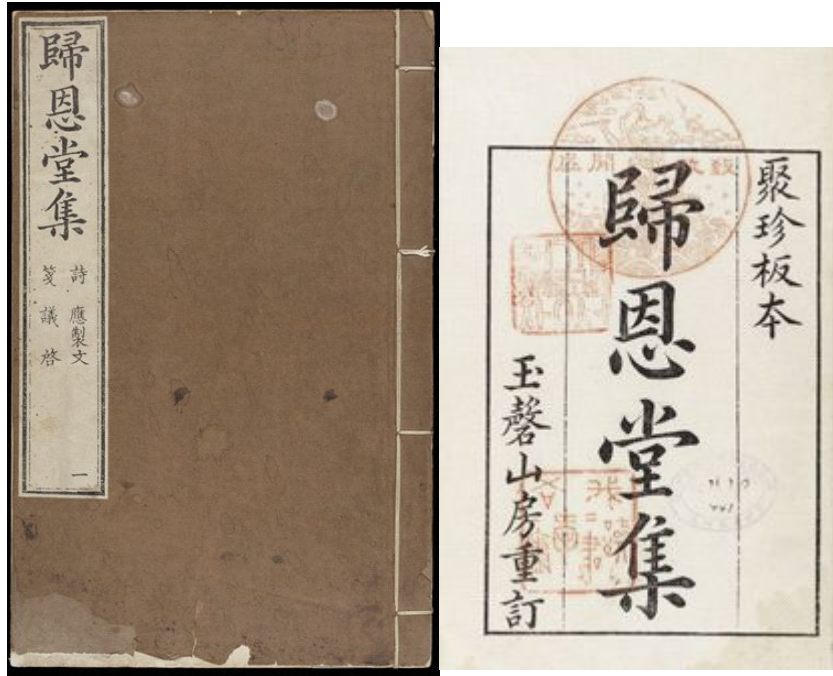 歸恩堂集
詩 應製文
箋 議 啓
一
聚珍板本
歸恩堂集
玉磬山房重訂